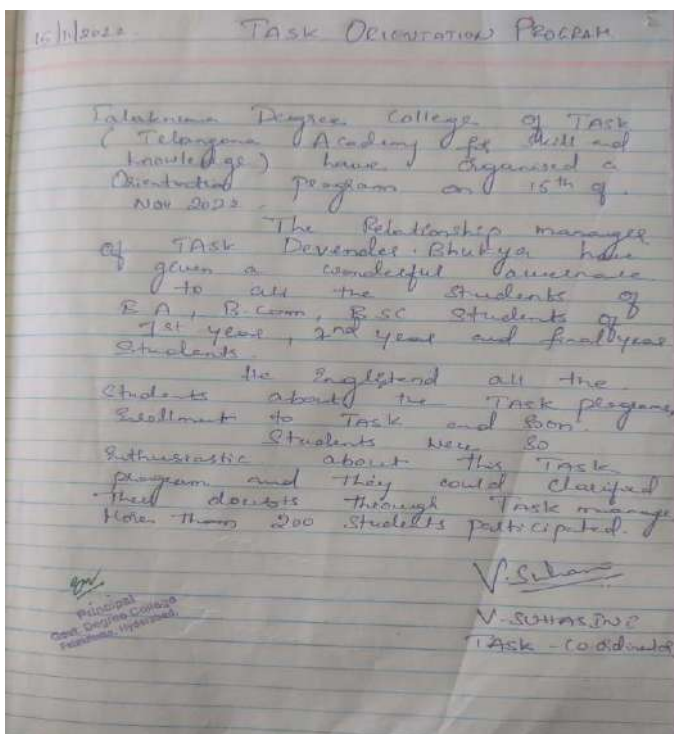 15/11/2022 TASK ORIENTATION PROGRAM
Falaknuma Degree College of TASK
( Telangana Academy for Skill and
Knowledge ) have Organised a
Orientation Program on 15th of
Nov 2022.
The Relationship manager
of TASK Devender. Bhukya have
given a wonderful awareness
to all the Students of
B A, B. Com, B SC Students of
1st year, 2nd year and final year
Students.
He all the
Students about the TASK program,
Enrollment to TASK and soon.
Students were so
Enthusiastic about this TASK
program and they could clarified
their doubts through TASK manage
More than 200 Students participated.
V. Suhas
V-SUHASINI
TASK - Co ordinator
Principal
Govt. Degree College
Falaknuma, Hyderabad.